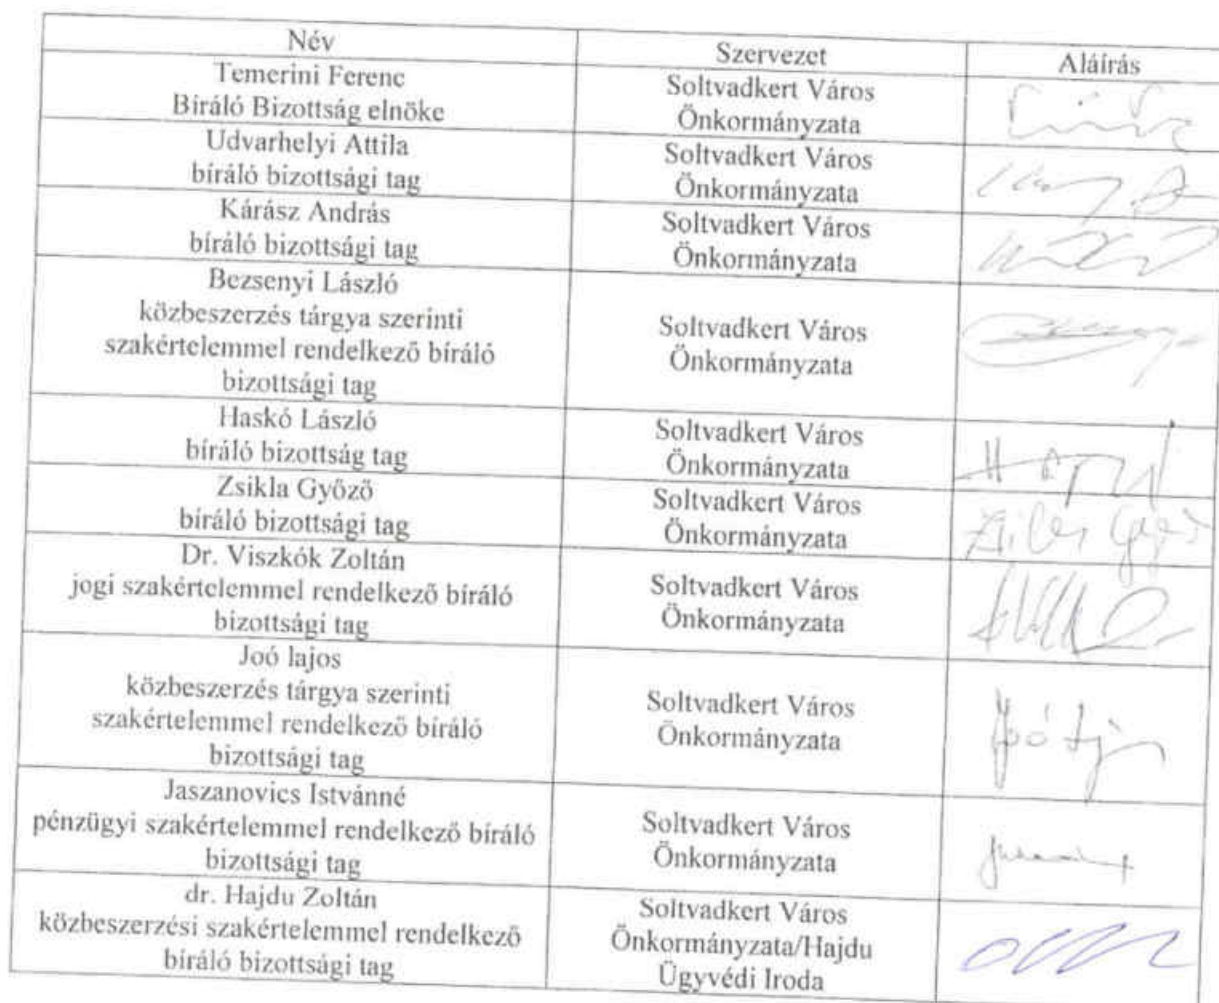 Név
Szervezet
Aláírás
Temerini Ferenc
Bíráló Bizottság elnöke
Soltvadkert Város
Önkormányzata
Udvarhelyi Attila
bíráló bizottsági tag
Soltvadkert Város
Önkormányzata
Kárász András
bíráló bizottsági tag
Soltvadkert Város
Önkormányzata
Bezsenyi László
közbeszerzés tárgya szerinti
szakértelemmel rendelkező bíráló
bizottsági tag
Soltvadkert Város
Önkormányzata
Haskó László
bíráló bizottság tag
Soltvadkert Város
Önkormányzata
Zsikla Győző
bíráló bizottsági tag
Soltvadkert Város
Önkormányzata
Dr. Viszkók Zoltán
jogi szakértelemmel rendelkező bíráló
bizottsági tag
Soltvadkert Város
Önkormányzata
Joó lajos
közbeszerzés tárgya szerinti
szakértelemmel rendelkező bíráló
bizottsági tag
Soltvadkert Város
Önkormányzata
Jaszanovics Istvánné
pénzügyi szakértelemmel rendelkező bíráló
bizottsági tag
Soltvadkert Város
Önkormányzata
dr. Hajdu Zoltán
közbeszerzési szakértelemmel rendelkező
bíráló bizottsági tag
Soltvadkert Város
Önkormányzata/Hajdu
Ügyvédi Iroda